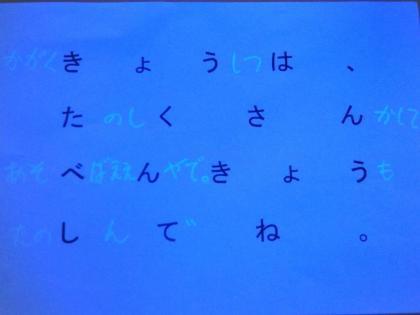 かがくきょうしつは、
たのしくさんかして
あそべばええんやで。きょうも
たのしんでね。